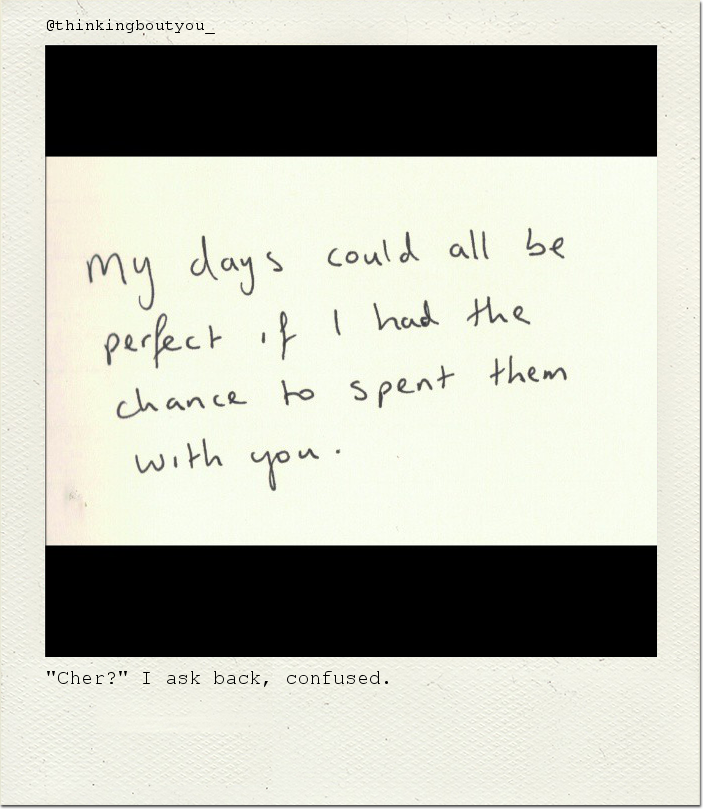 @thinkingboutyou_
My days could all be
perfect if I had the
chance to spent them
with you.
"Cher?" I ask back, confused.